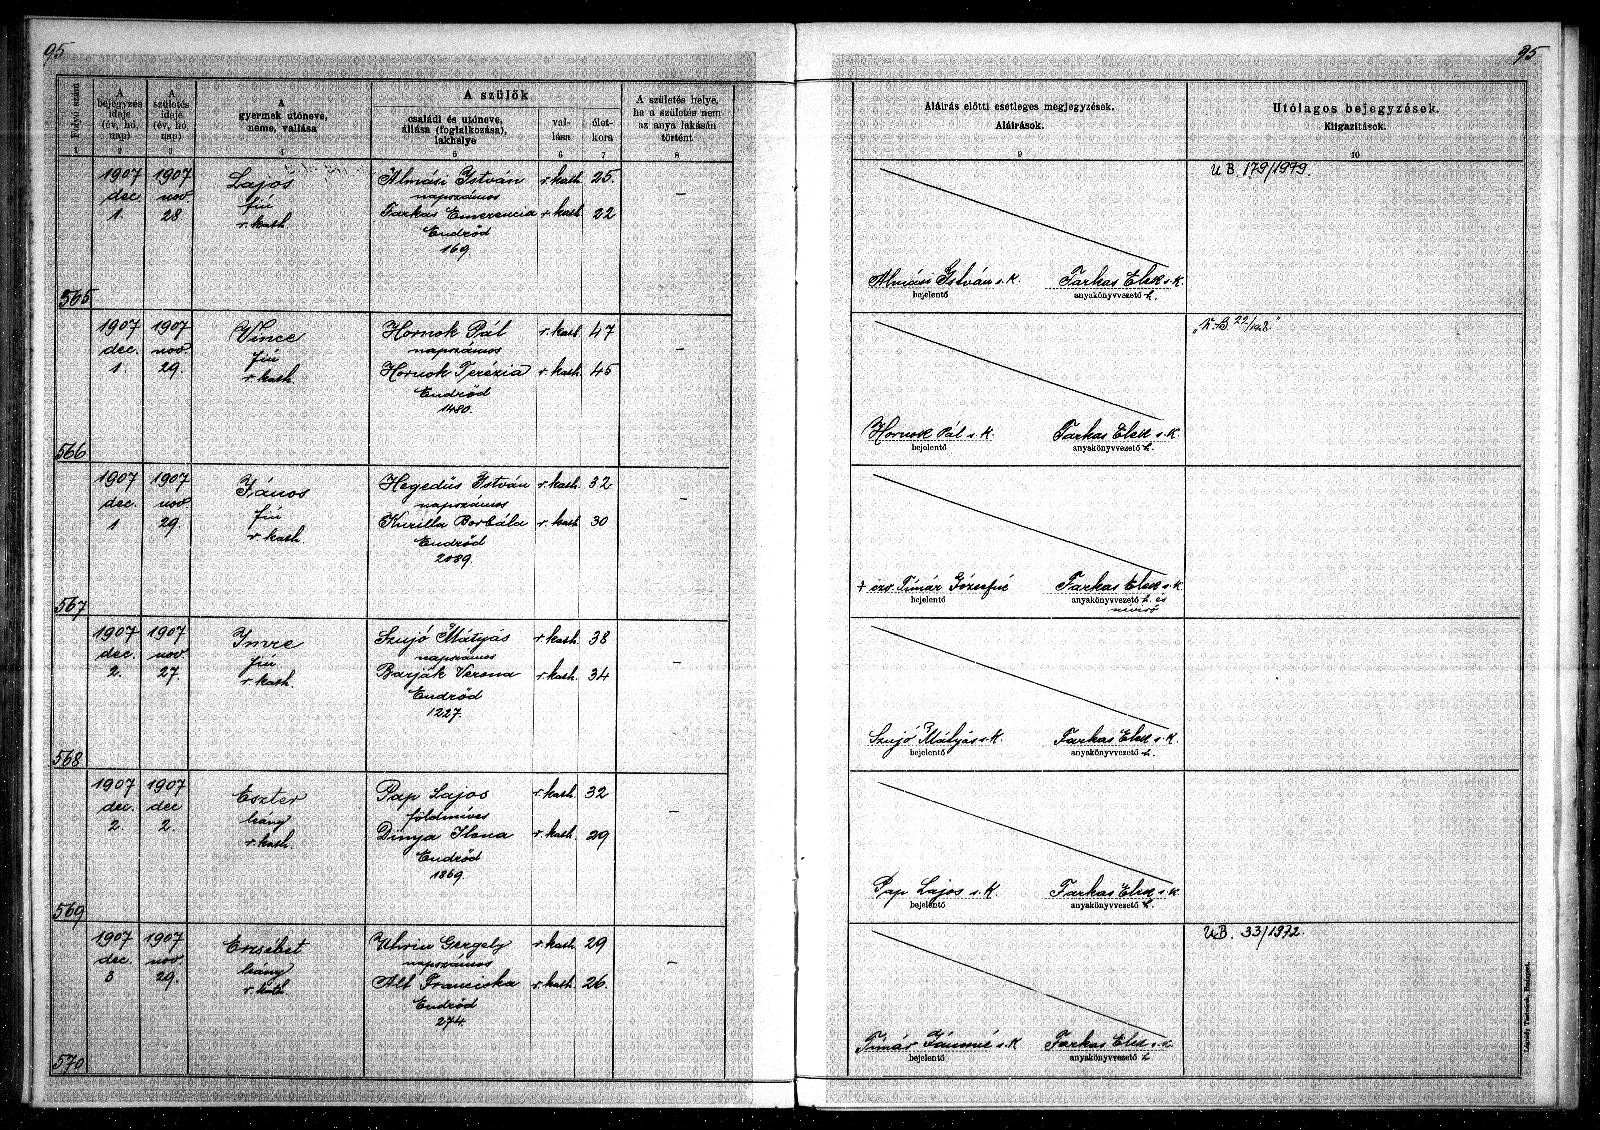 95
95
Folyó szám
A bejegyzés ideje (év, hó, nap)
A születés ideje (év, hó, nap)
A gyermek utóneve, neme, vallása
A szülők
családi és utóneve, állása (foglalkozása), lakhelye
val-lása
élet-kora
A születés helye, ha a születés nem az anya lakásán történt
Aláírás előtti esetleges megjegyzések.
Aláírások.
Utólagos bejegyzések.
Kiigazítások.
1 2 3 4 5 6 7 8 9 10
1907 1907 Lajos Almási István r. kath. 25.
dec nov fiú napszámos
1. 28 r. kath Farkas Emerencia r. kath 22
Endrőd
169.
565
U B. 179/1979.
Almási István s. k. Farkas Elek s. k.
bejelentő anyakönyvvezető h.
1907 1907 Vince Hornok Pál r. kath. 47
dec. nov. fiú napszámos
1 29. r. kath. Hornok Terézia r. kath. 45
Endrőd
1480.
566
Hornok Pál s. k. Farkas Elek s. k.
bejelentő anyakönyvvezető h.
1907 1907 János Hegedüs István r. kath. 32
dec. nov fiú napszámos
1 29. r. kath. Kurilla Borbála r. kath. 30
Endrőd
2089.
567
+ özv. Tímár Józsefné Farkas Elek s. k.
bejelentő anyakönyvvezető h. és
névíró
1907 1907 Imre Szujó Mátyás r. kath. 38
dec. nov fiú napszámos
2. 27 r. kath. Barják Verona r. kath. 34
Endrőd
1227.
568
Szujó Mátyás s. k. Farkas Elek s. k.
bejelentő anyakönyvvezető h.
1907 1907 Eszter Pap Lajos r. kath. 32
dec. dec leány földmíves
2. 2. r. kath. Dinya Ilona r. kath. 29
Endrőd
1869.
569
Pap Lajos s. k. Farkas Elek s. k.
bejelentő anyakönyvvezető h.
1907 1907 Erzsébet Uhrin Gergely r. kath 29
dec. nov. leány napszámos
3 29. r. kath. Alt Franciska r. kath. 26.
Endrőd
274.
570
UB. 33/1972.
Tímár Jánosné s. k. Farkas Elek s. k.
bejelentő anyakönyvvezető h.